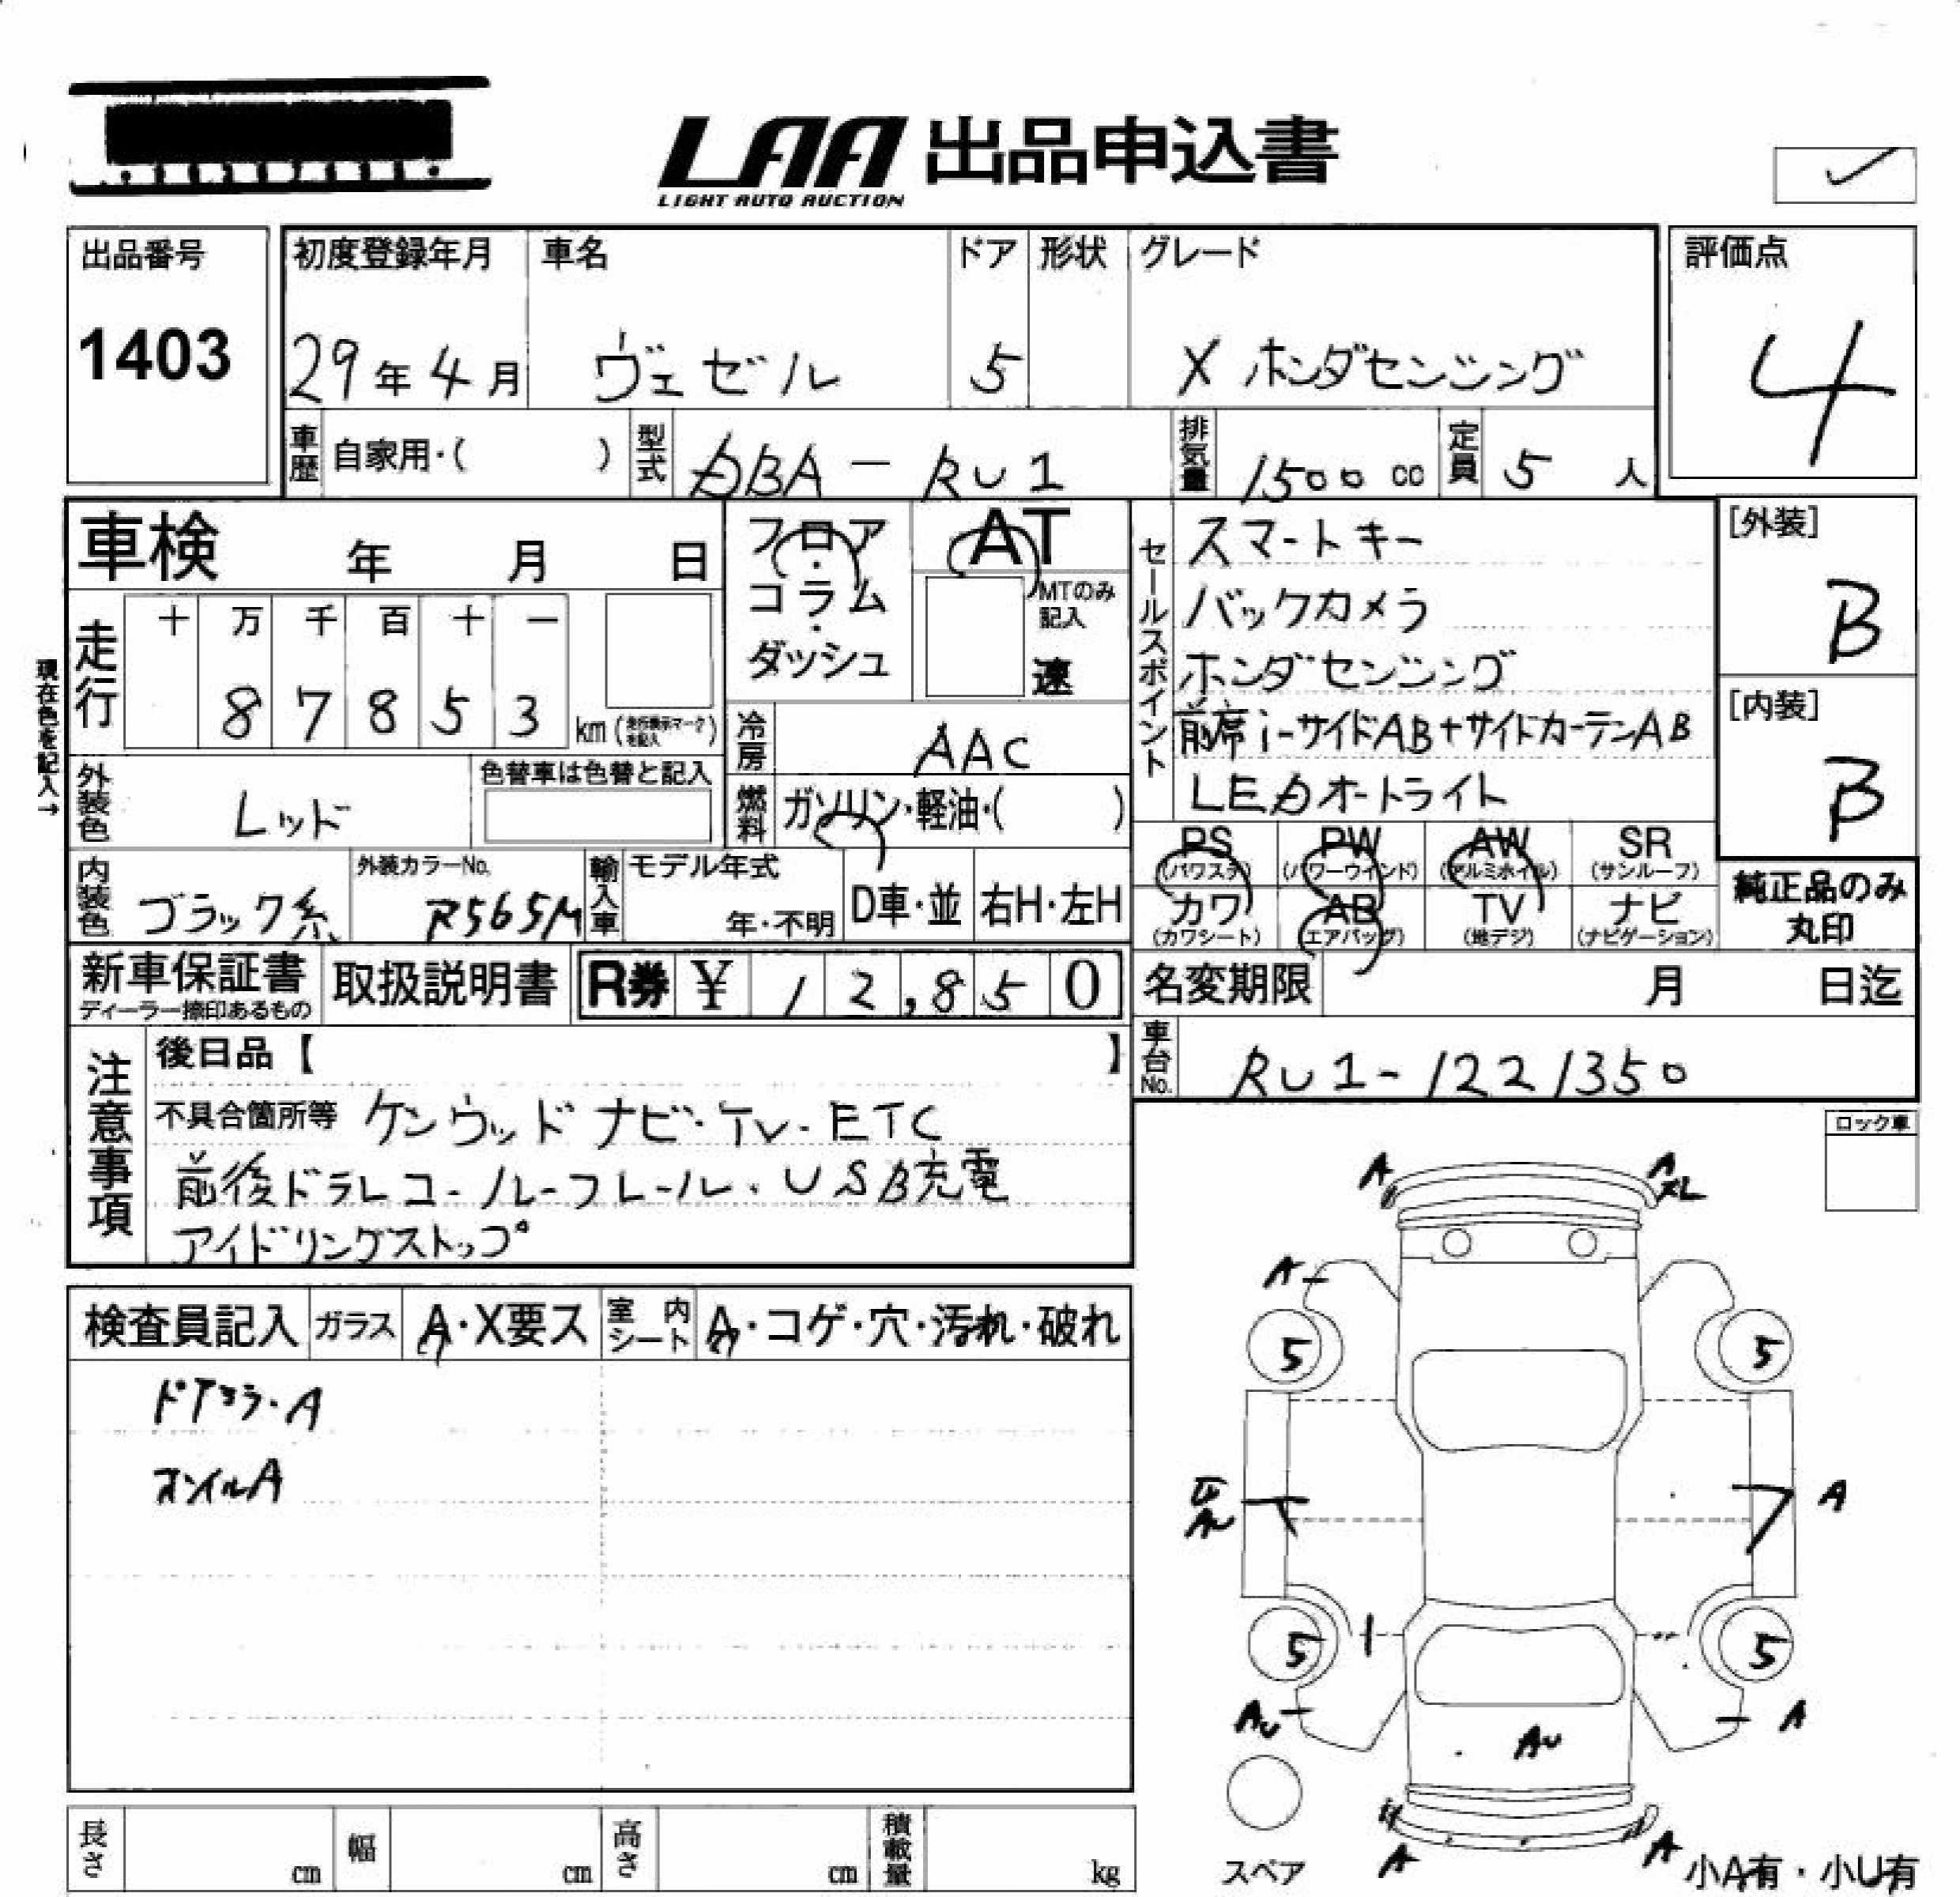 LAA 出品申込書
LIGHT AUTO AUCTION
出品番号
1403
初度登録年月 車名 ドア 形状 グレード
29年4月 ヴェゼル 5 X ホンダセンシング
評価点
4
車歴 自家用・( ) 型式 DBA-RU1 排気量 1500cc 定員 5人
車検 年 月 日
フロア・コラム・ダッシュ
AT
MTのみ記入
速
セールスポイント
スマートキー
バックカメラ
ホンダセンシング
前席i-サイドAB+サイドカーテンAB
LEDオートライト
[外装]
B
[内装]
B
現在色を記入→
走行
十 万 千 百 十 一
8 7 8 5 3 km (走行表示マークを記入)
冷房 AAC
外装色 レッド
色替車は色替と記入
燃料 ガソリン・軽油・( )
PS (パワステ) PW (パワーウインド) AW (アルミホイル) SR (サンルーフ)
カワ (カワシート) AB (エアバッグ) TV (地デジ) ナビ (ナビゲーション)
純正品のみ丸印
内装色 ブラック系
外装カラーNo. R565M
輸入車 モデル年式 年・不明 D車・並 右H・左H
新車保証書
ディーラー捺印あるもの
取扱説明書
R券 ¥ 12,850
名変期限 月 日迄
車台No. RU1-1221350
注意事項
後日品【 】
不具合箇所等 ケンウッド ナビ・TV・ETC
前後ドラレコ・ルーフレール・USB充電
アイドリングストップ
ロック車
検査員記入 ガラス A・X要ス 室内シート A・コゲ・穴・汚れ・破れ
ドアミラ・A
ホイルA
A
A
XL
A
5
5
AU
A
5
5
AU
A
AU
A
A
スペア
小A有・小U有
長さ cm 幅 cm 高さ cm 積載量 kg